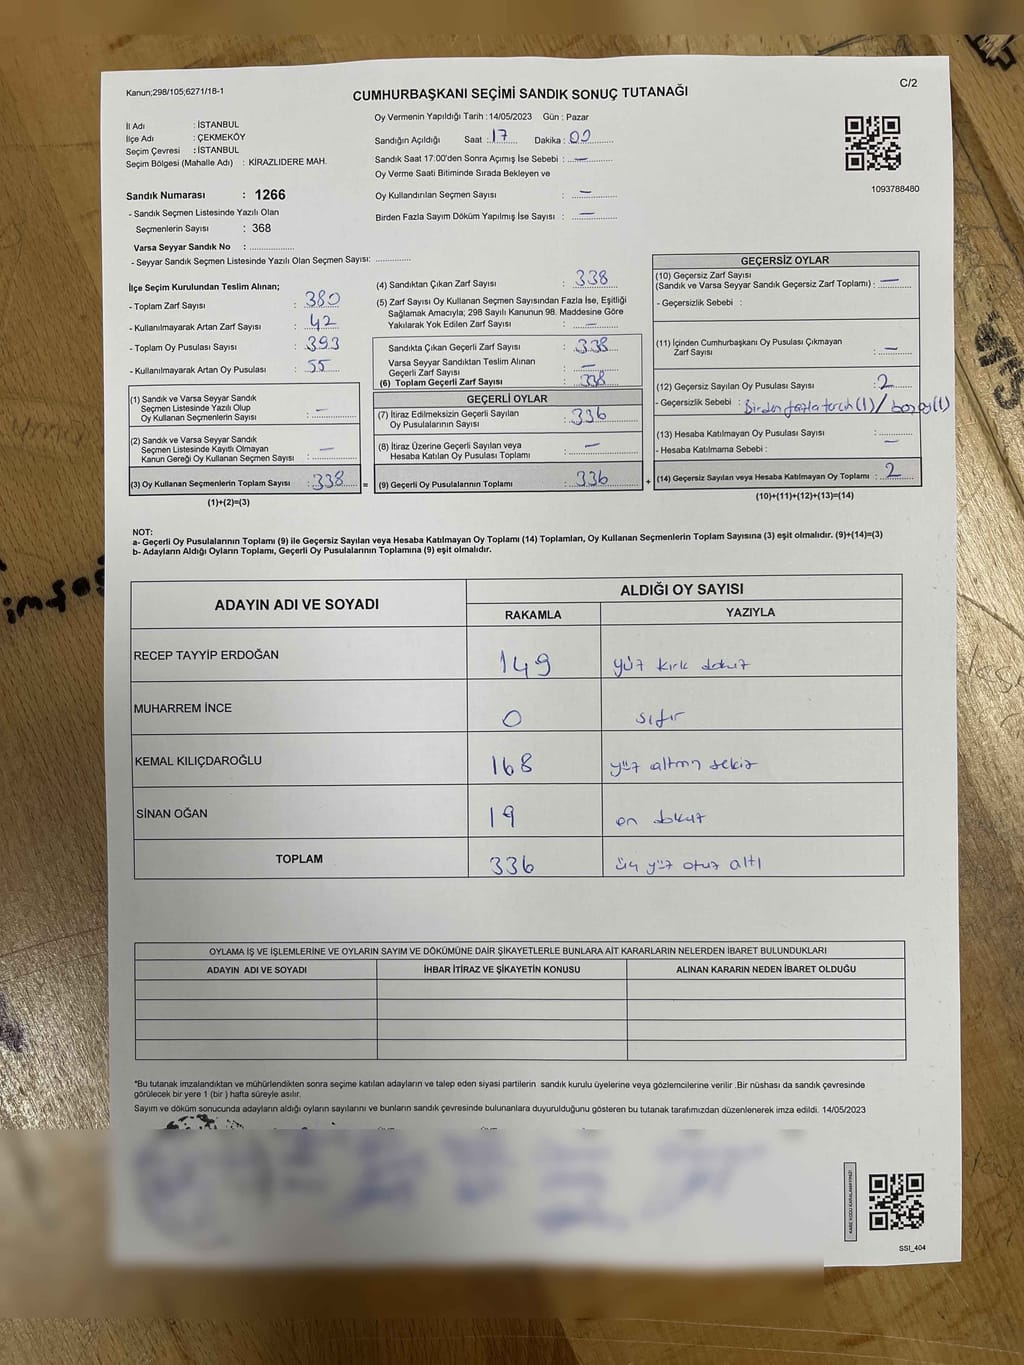 Kanun;298/105;6271/18-1
C/2
CUMHURBAŞKANI SEÇİMİ SANDIK SONUÇ TUTANAĞI
İl Adı : İSTANBUL
İlçe Adı : ÇEKMEKÖY
Seçim Çevresi : İSTANBUL
Seçim Bölgesi (Mahalle Adı) : KİRAZLIDERE MAH.
Sandık Numarası : 1266
- Sandık Seçmen Listesinde Yazılı Olan
Seçmenlerin Sayısı : 368
Varsa Seyyar Sandık No : ..................
- Seyyar Sandık Seçmen Listesinde Yazılı Olan Seçmen Sayısı: .............
Oy Vermenin Yapıldığı Tarih : 14/05/2023 Gün : Pazar
Sandığın Açıldığı Saat : 17 Dakika : 00
Sandık Saat 17:00'den Sonra Açımış İse Sebebi : —
Oy Verme Saati Bitiminde Sırada Bekleyen ve
Oy Kullandırılan Seçmen Sayısı : —
Birden Fazla Sayım Döküm Yapılmış İse Sayısı : —
1093788480
İlçe Seçim Kurulundan Teslim Alınan;
- Toplam Zarf Sayısı : 380
- Kullanılmayarak Artan Zarf Sayısı : 42
- Toplam Oy Pusulası Sayısı : 393
- Kullanılmayarak Artan Oy Pusulası : 55
(1) Sandık ve Varsa Seyyar Sandık
Seçmen Listesinde Yazılı Olup
Oy Kullanan Seçmenlerin Sayısı : —
(2) Sandık ve Varsa Seyyar Sandık
Seçmen Listesinde Kayıtlı Olmayan
Kanun Gereği Oy Kullanan Seçmen Sayısı : —
(3) Oy Kullanan Seçmenlerin Toplam Sayısı : 338 =
(1)+(2)=(3)
(4) Sandıktan Çıkan Zarf Sayısı : 338
(5) Zarf Sayısı Oy Kullanan Seçmen Sayısından Fazla İse, Eşitliği
Sağlamak Amacıyla; 298 Sayılı Kanunun 98. Maddesine Göre
Yakılarak Yok Edilen Zarf Sayısı : —
Sandıkta Çıkan Geçerli Zarf Sayısı : 338
Varsa Seyyar Sandıktan Teslim Alınan
Geçerli Zarf Sayısı : —
(6) Toplam Geçerli Zarf Sayısı : 338
GEÇERLİ OYLAR
(7) İtiraz Edilmeksizin Geçerli Sayılan
Oy Pusulalarının Sayısı : 336
(8) İtiraz Üzerine Geçerli Sayılan veya
Hesaba Katılan Oy Pusulası Toplamı : —
(9) Geçerli Oy Pusulalarının Toplamı : 336 +
GEÇERSİZ OYLAR
(10) Geçersiz Zarf Sayısı
(Sandık ve Varsa Seyyar Sandık Geçersiz Zarf Toplamı) : —
- Geçersizlik Sebebi :
(11) İçinden Cumhurbaşkanı Oy Pusulası Çıkmayan
Zarf Sayısı : —
(12) Geçersiz Sayılan Oy Pusulası Sayısı : 2
- Geçersizlik Sebebi : Birden fazla tercih (1) / boş oy (1)
(13) Hesaba Katılmayan Oy Pusulası Sayısı : —
- Hesaba Katılmama Sebebi :
(14) Geçersiz Sayılan veya Hesaba Katılmayan Oy Toplamı : 2
(10)+(11)+(12)+(13)=(14)
NOT:
a- Geçerli Oy Pusulalarının Toplamı (9) ile Geçersiz Sayılan veya Hesaba Katılmayan Oy Toplamı (14) Toplamları, Oy Kullanan Seçmenlerin Toplam Sayısına (3) eşit olmalıdır. (9)+(14)=(3)
b- Adayların Aldığı Oyların Toplamı, Geçerli Oy Pusulalarının Toplamına (9) eşit olmalıdır.
ADAYIN ADI VE SOYADI ALDIĞI OY SAYISI
RAKAMLA YAZIYLA
RECEP TAYYİP ERDOĞAN 149 yüz kırk dokuz
MUHARREM İNCE 0 sıfır
KEMAL KILIÇDAROĞLU 168 yüz altmış sekiz
SİNAN OĞAN 19 on dokuz
TOPLAM 336 üç yüz otuz altı
OYLAMA İŞ VE İŞLEMLERİNE VE OYLARIN SAYIM VE DÖKÜMÜNE DAİR ŞİKAYETLERLE BUNLARA AİT KARARLARIN NELERDEN İBARET BULUNDUKLARI
ADAYIN ADI VE SOYADI İHBAR İTİRAZ VE ŞİKAYETİN KONUSU ALINAN KARARIN NEDEN İBARET OLDUĞU
*Bu tutanak imzalandıktan ve mühürlendikten sonra seçime katılan adayların ve talep eden siyasi partilerin sandık kurulu üyelerine veya gözlemcilerine verilir .Bir nüshası da sandık çevresinde
görülecek bir yere 1 (bir ) hafta süreyle asılır.
Sayım ve döküm sonucunda adayların aldığı oyların sayılarını ve bunların sandık çevresinde bulunanlara duyurulduğunu gösteren bu tutanak tarafımızdan düzenlenerek imza edildi. 14/05/2023
SSI_404